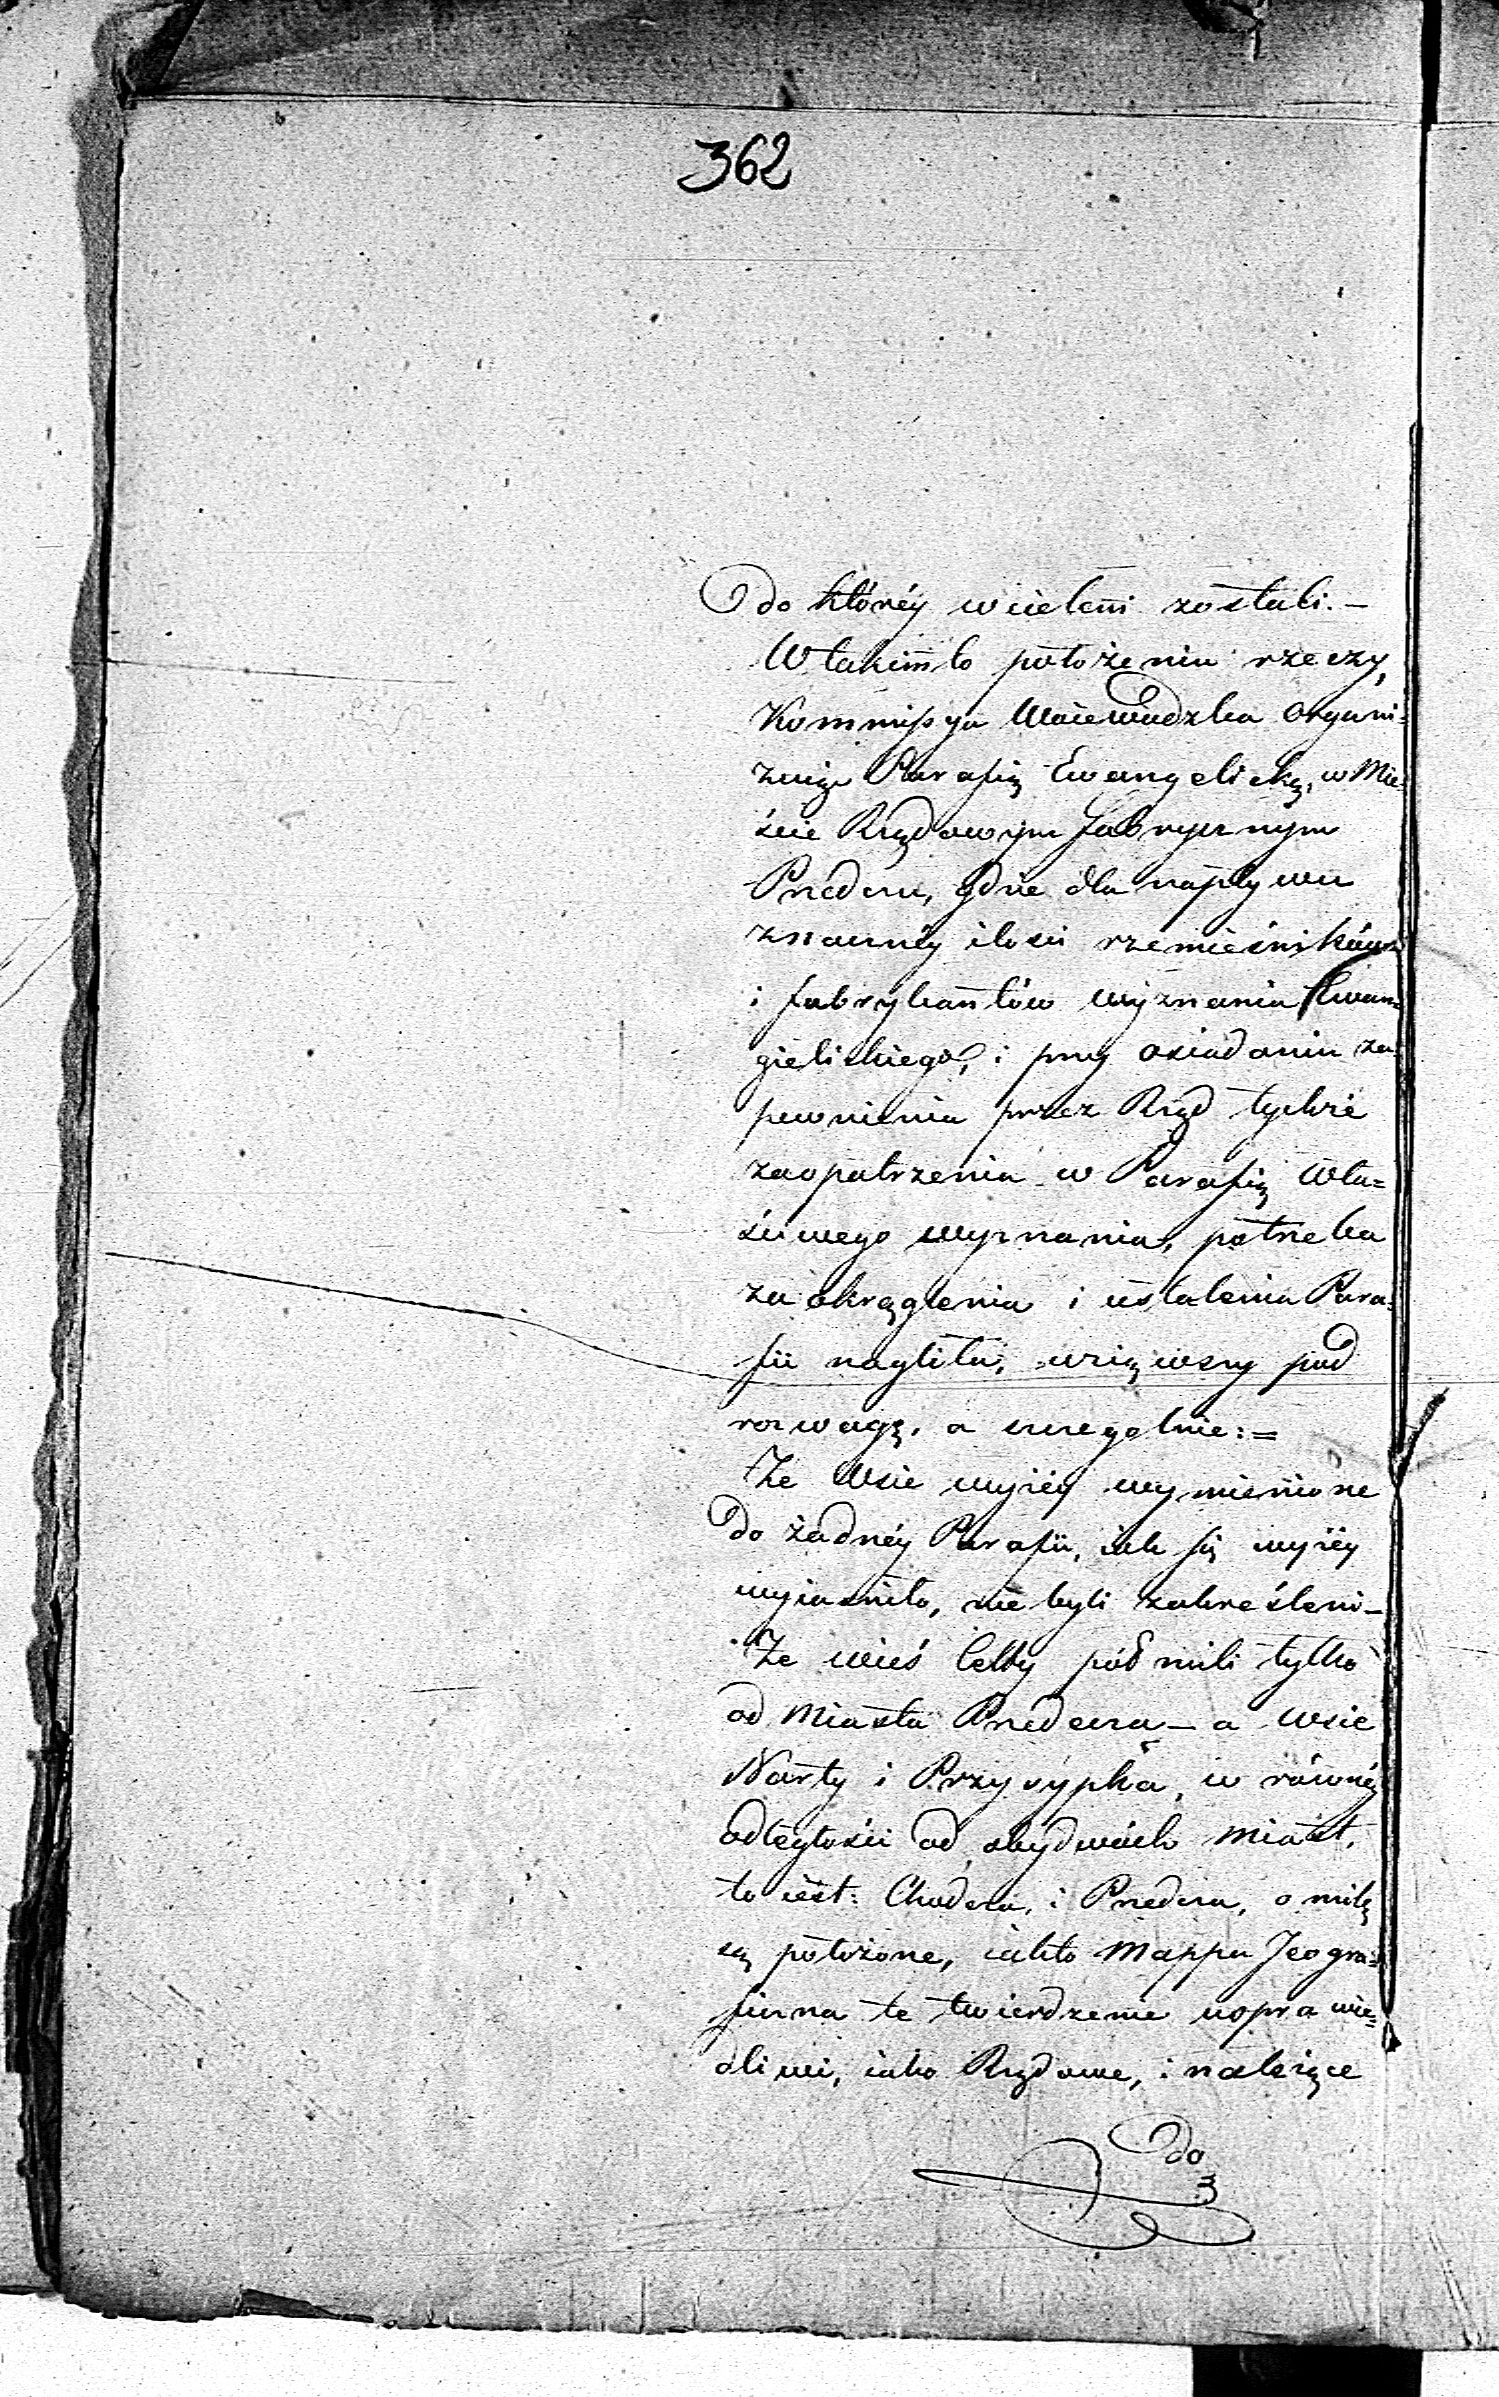 362
do któréy wcieleni zostali. –
W takim to położeniu rzeczy,
Kommissya Woiewodzka organi=
zuiąc Parafią Ewangelicką, w Mie=
ście Rządowym fabrycznym
Przedeczu, gdzie dla napływu
znacznéy ilości rzemieśników
i fabrykantów wyznania Ewan=
gielickiego, i przy osiadaniu za=
pewnienia przez Rząd tychże
zaopatrzenia w Parafią wła=
ściwego wyznania, potrzeba
zaokrąglenia i ustalenia Para=
fii nagliła, wziąwszy pod
rozwagę, a szczegolnie: =
Że wsie wyżéy wymienione
do żadnéy Parafii, iak się wyżéy
wyiaśniło, nie byli zakreśleni –
Że wieś Cetty pół mili tylko
od Miasta Przedecza – a wsie
Narty i Przysypka, w równéy
odległości od obydwóch miast,
to iest: Chodcza, i Przedcza, o milę
są położone, iakto Mappa Jeogra=
ficzna te twierdzenie uspra wie=
dliwi, iako Rządowe, i należące
do
3